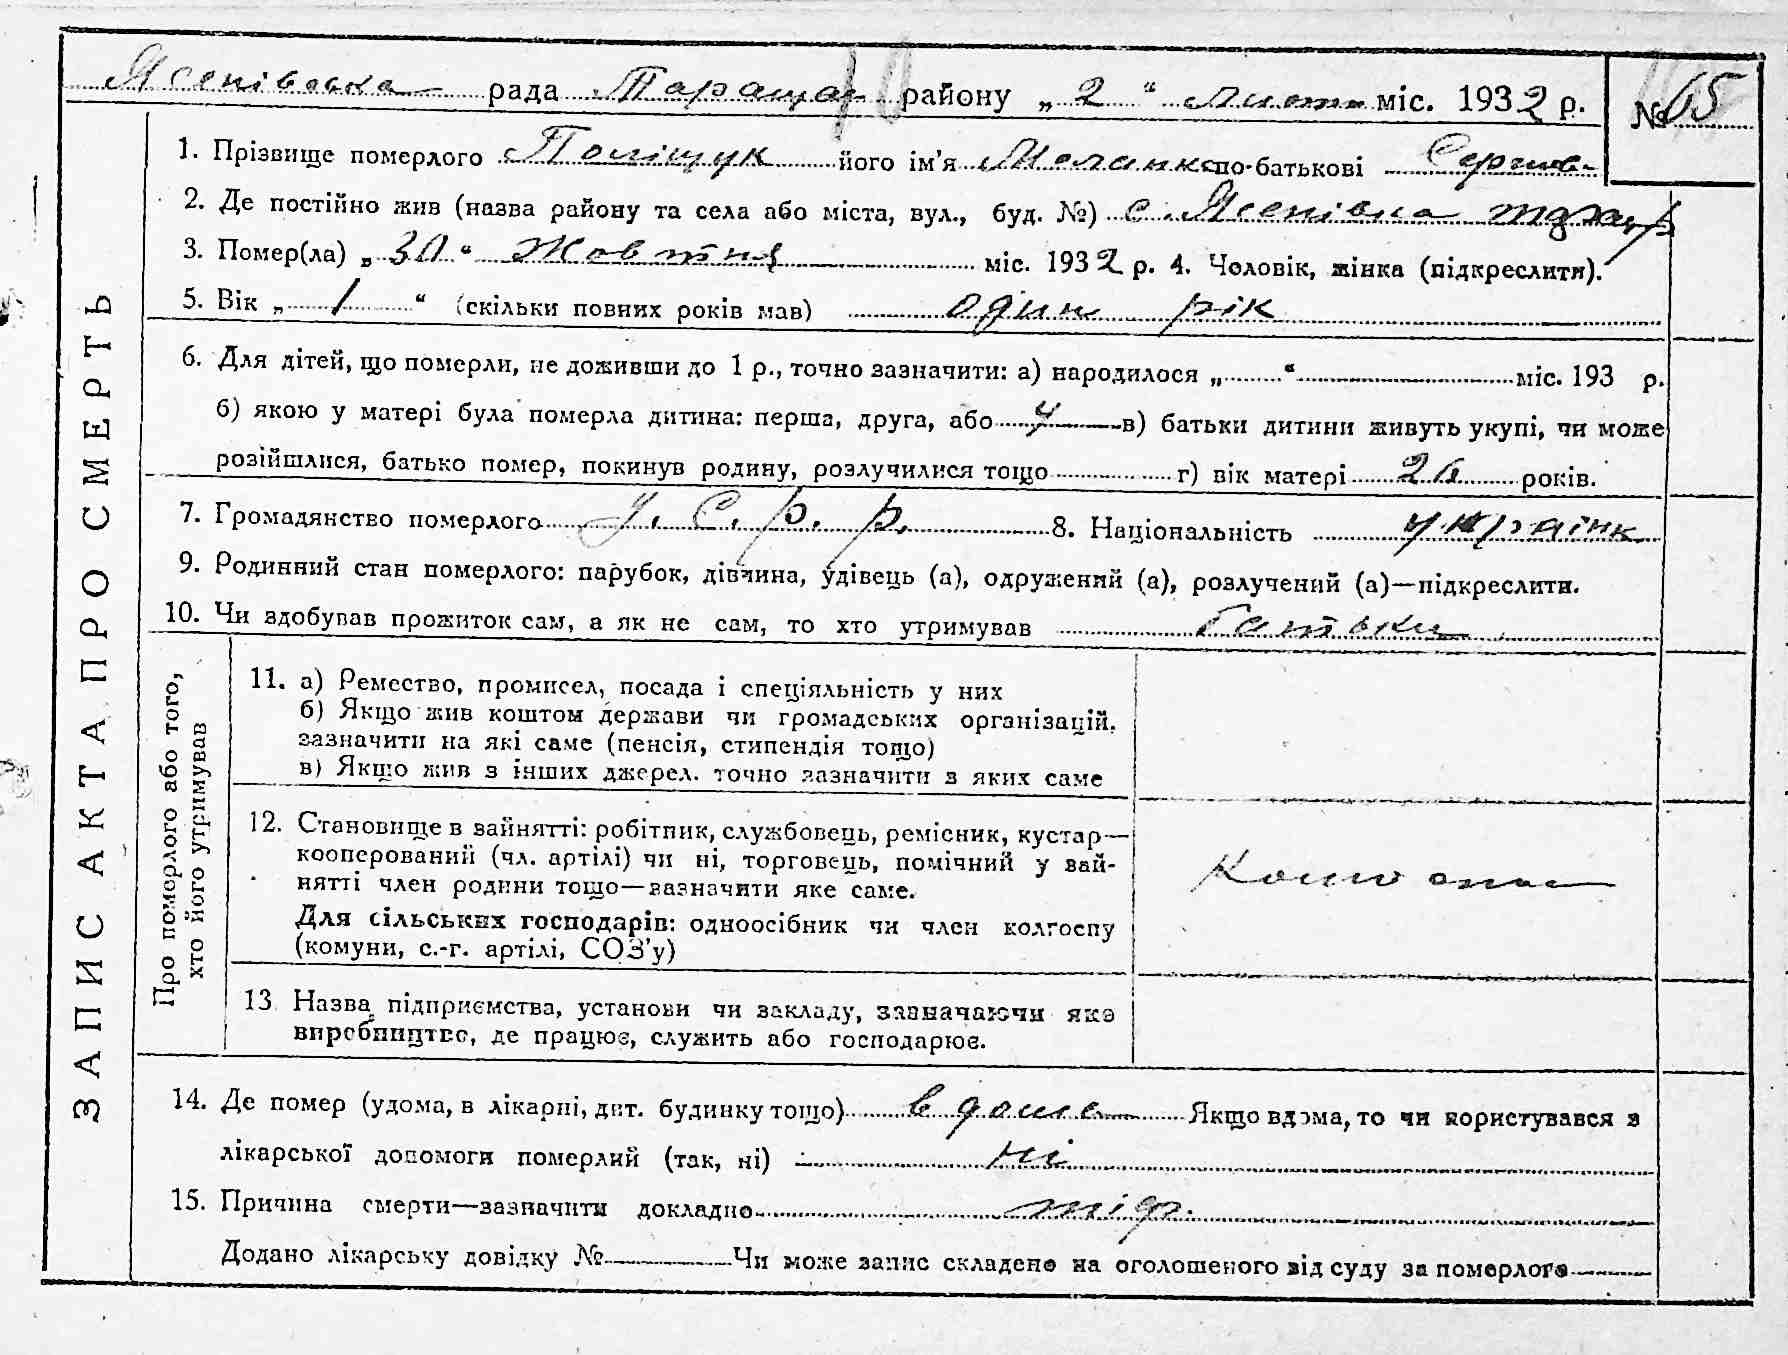 Ясенівська рада Таращан району „ 2 “ Лист. міс. 1932 р. № 65
1. Прізвище померлого Поліщук його ім’я Меланка по-батькові Сергіїв-
2. Де постійно жив (назва району та села або міста, вул., буд. №) с. Ясенівка
3. Помер(ла) „ 30 “ Жовтня міс. 1932 р. 4. Чоловік, жінка (підкреслити).
5. Вік „ 1 “ (скільки повних років мав) один рік
6. Для дітей, що померли, не доживши до 1 р., точно зазначити: а) народилося „ “ міс. 193 р.
б) якою у матері була померла дитина: перша, друга, або 4 в) батьки дитини живуть укупі, чи може
розійшлися, батько помер, покинув родину, розлучилися тощо г) вік матері років.
7. Громадянство померлого У. С. р. р. 8. Національність українк
9. Родинний стан померлого: парубок, дівчина, удівець (а), одружений (а), розлучений (а)—підкреслити.
10. Чи здобував прожиток сам, а як не сам, то хто утримував батьки
ЗАПИС АКТА ПРО СМЕРТЬ
Про померлого або того,
хто його утримував
11. а) Ремество, промисел, посада і спеціяльність у них
б) Якщо жив коштом держави чи громадських організацій,
зазначити на які саме (пенсія, стипендія тощо)
в) Якщо жив з інших джерел, точно зазначити з яких саме
12. Становище в зайнятті: робітник, службовець, ремісник, кустар—
кооперований (чл. артілі) чи ні, торговець, помічний у зай-
нятті член родини тощо—зазначити яке саме.
Для сільських господарів: одноосібник чи член колгоспу
(комуни, с.-г. артілі, СОЗ’у)
13. Назва підприємства, установи чи закладу, зазначаючи яке
виробництво, де працює, служить або господарює.
14. Де помер (удома, в лікарні, дит. будинку тощо) в дома Якщо вдома, то чи користувався з
лікарської допомоги померлий (так, ні) ні
15. Причина смерти—зазначити докладно тіф.
Додано лікарську довідку № Чи може запис складено на оголошеного від суду за померлого